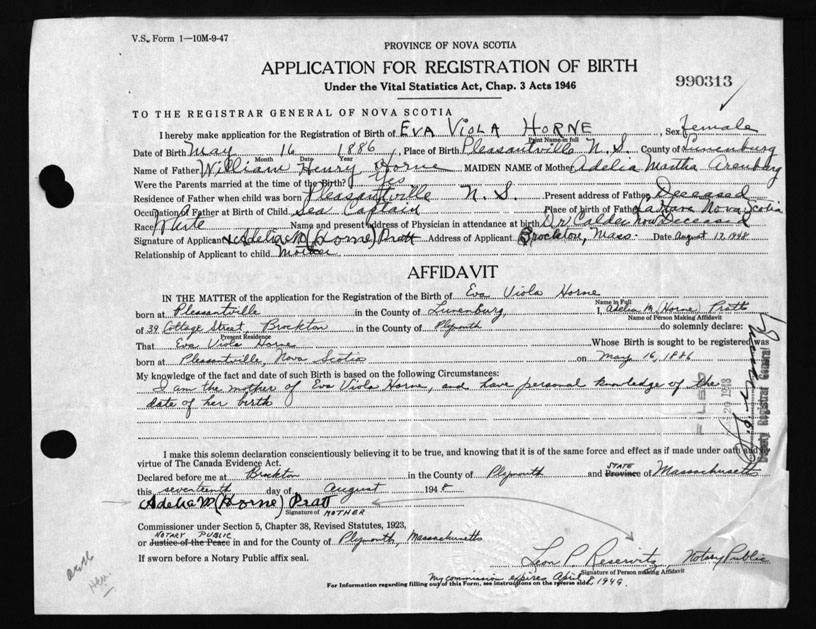 V.S. Form 1—10M-9-47
PROVINCE OF NOVA SCOTIA
APPLICATION FOR REGISTRATION OF BIRTH
Under the Vital Statistics Act, Chap. 3 Acts 1946
990313
TO THE REGISTRAR GENERAL OF NOVA SCOTIA
I hereby make application for the Registration of Birth of EVA VIOLA HORNE, Sex female
Print Name in full
Date of Birth May 16 1886, Place of Birth Pleasantville N.S. County of Lunenburg
Month Date Year
Name of Father William Henry Horne MAIDEN NAME of Mother Adelia Martha Arenburg
Were the Parents married at the time of the Birth? Yes
Residence of Father when child was born Pleasantville N.S. Present address of Father Deceased
Occupation of Father at Birth of Child Sea Captain Place of birth of Father LaHave Nova Scotia
Race White Name and present address of Physician in attendance at birth Dr Calder now Deceased
Signature of Applicant x Adelia M (Horne) Pratt Address of Applicant Brockton, Mass. Date August 17, 1948
Relationship of Applicant to child Mother
AFFIDAVIT
IN THE MATTER of the application for the Registration of the Birth of Eva Viola Horne
Name in Full
born at Pleasantville in the County of Lunenburg, I, Adelia M. (Horne) Pratt
Name of Person Making Affidavit
of 39 Cottage Street, Brockton in the County of Plymouth do solemnly declare:
Present Residence
That Eva Viola Horne Whose Birth is sought to be registered was
born at Pleasantville, Nova Scotia on May 16, 1886
My knowledge of the fact and date of such Birth is based on the following Circumstances:
I am the mother of Eva Viola Horne, and have personal knowledge of the
date of her birth
FILED
20 1948
Deputy Registrar General
I make this solemn declaration conscientiously believing it to be true, and knowing that it is of the same force and effect as if made under oath and by
virtue of The Canada Evidence Act.
STATE
Declared before me at Brockton in the County of Plymouth and Province of Massachusetts
this seventeenth day of August 1948
Adelia M (Horne) Pratt
Signature of MOTHER
Commissioner under Section 5, Chapter 38, Revised Statutes, 1923,
NOTARY PUBLIC
or Justice of the Peace in and for the County of Plymouth, Massachusetts
If sworn before a Notary Public affix seal.
Leon P. Reservitz, Notary Public
Signature of Person making Affidavit
My commission expires April 8, 1949.
For Information regarding filling out of this Form, see instructions on the reverse side.